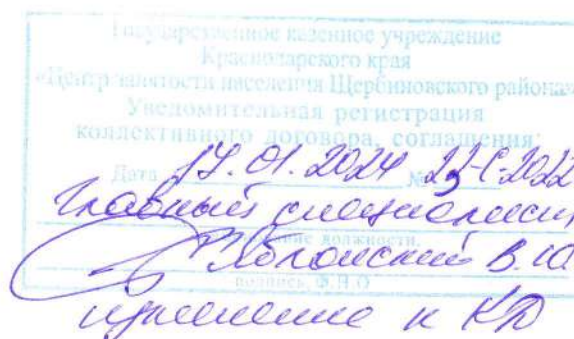 Государственное казенное учреждение
Краснодарского края
«Центр занятости населения Щербиновского района»
Уведомительная регистрация
коллективного договора, соглашения:
Дата 17.01.2024 № 22-С-2022
Главный специалист
должности.
В.Ю
подпись, Ф.И.О
изменение к КД